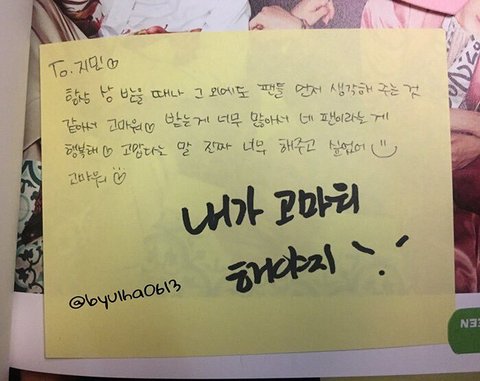 To. 지민♡
항상 상 받을 때나 그 외에도 팬들 먼저 생각해 주는 것
같아서 고마워♡ 받는게 너무 많아서 네 팬이라는 게
행복해♡ 고맙다는 말 진짜 너무 해주고 싶었어
고마워♡
내가 고마워
해야지
@byulha0613
EEN